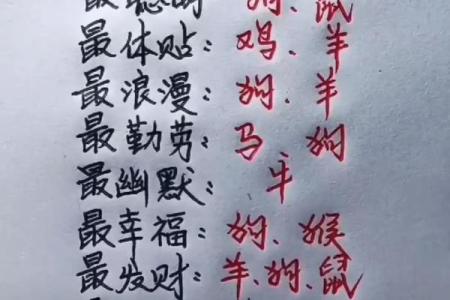 最聪明：狗、鼠
最体贴：鸡、羊
最浪漫：狗、羊
最勤劳：马、狗
最幽默：牛
最幸福：狗、猴
最发财：羊、狗、鼠